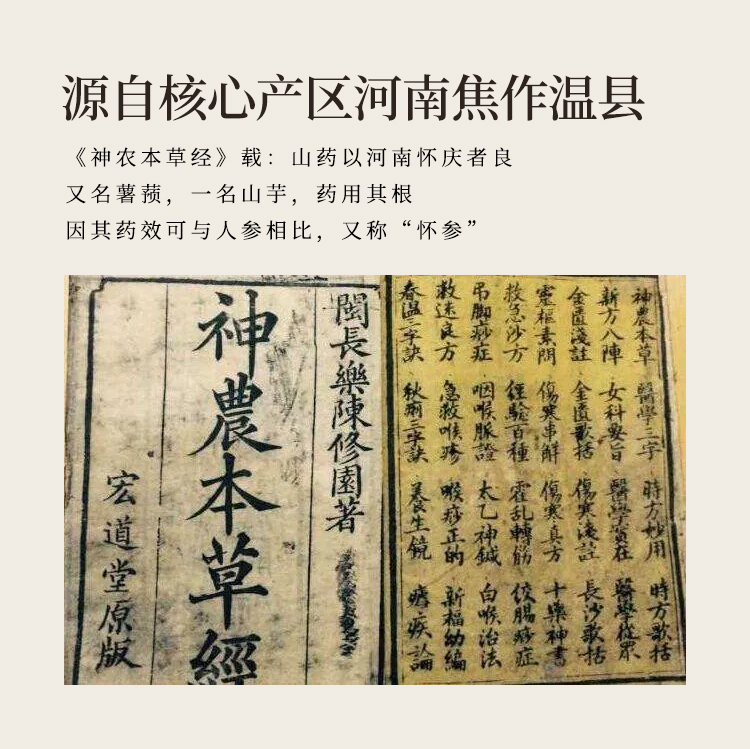 源自核心产区河南焦作温县
《神农本草经》载：山药以河南怀庆者良
又名薯蓣，一名山芋，药用其根
因其药效可与人参相比，又称“怀参”
神農本草 醫學三字 時方妙用 時方歌括
新方八陣 女科要旨 醫學實在 醫學從眾
金匱淺註 金匱歌括 傷寒淺註 長沙歌括
靈樞素問 傷寒串解 傷寒真方 十藥神書
救急沙方 經驗百種 霍乱轉筋 絞腸痧症
吊脚痧症 咽喉脈證 太乙神鍼 白喉治法
救迷良方 急救喉疹 喉痧正的 新福幼編
春温三字訣 秋瘧三字訣 養生鏡 瘧疾論
閩長樂陳修園著
神農本草經
宏道堂原版